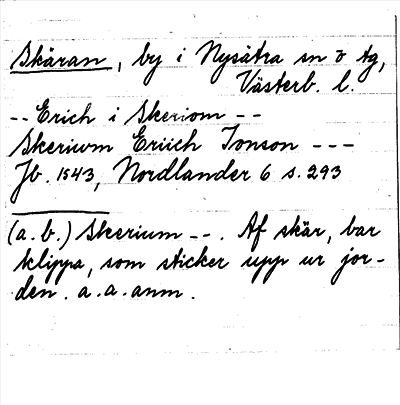 Skäran, by i Nysätra sn o tg,
Västerb. l.
-- Erich i Skeriom --
Skeriwm Eriich Jonson ---
Jb. 1543, Nordlander 6 s. 293
(a. b.) Skerium --. Af skär, bar
klippa, som sticker upp ur jor-
den. a. a. anm.